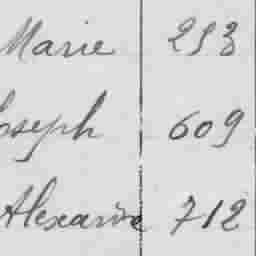 Marie 293
Joseph 609
Alexandre 712